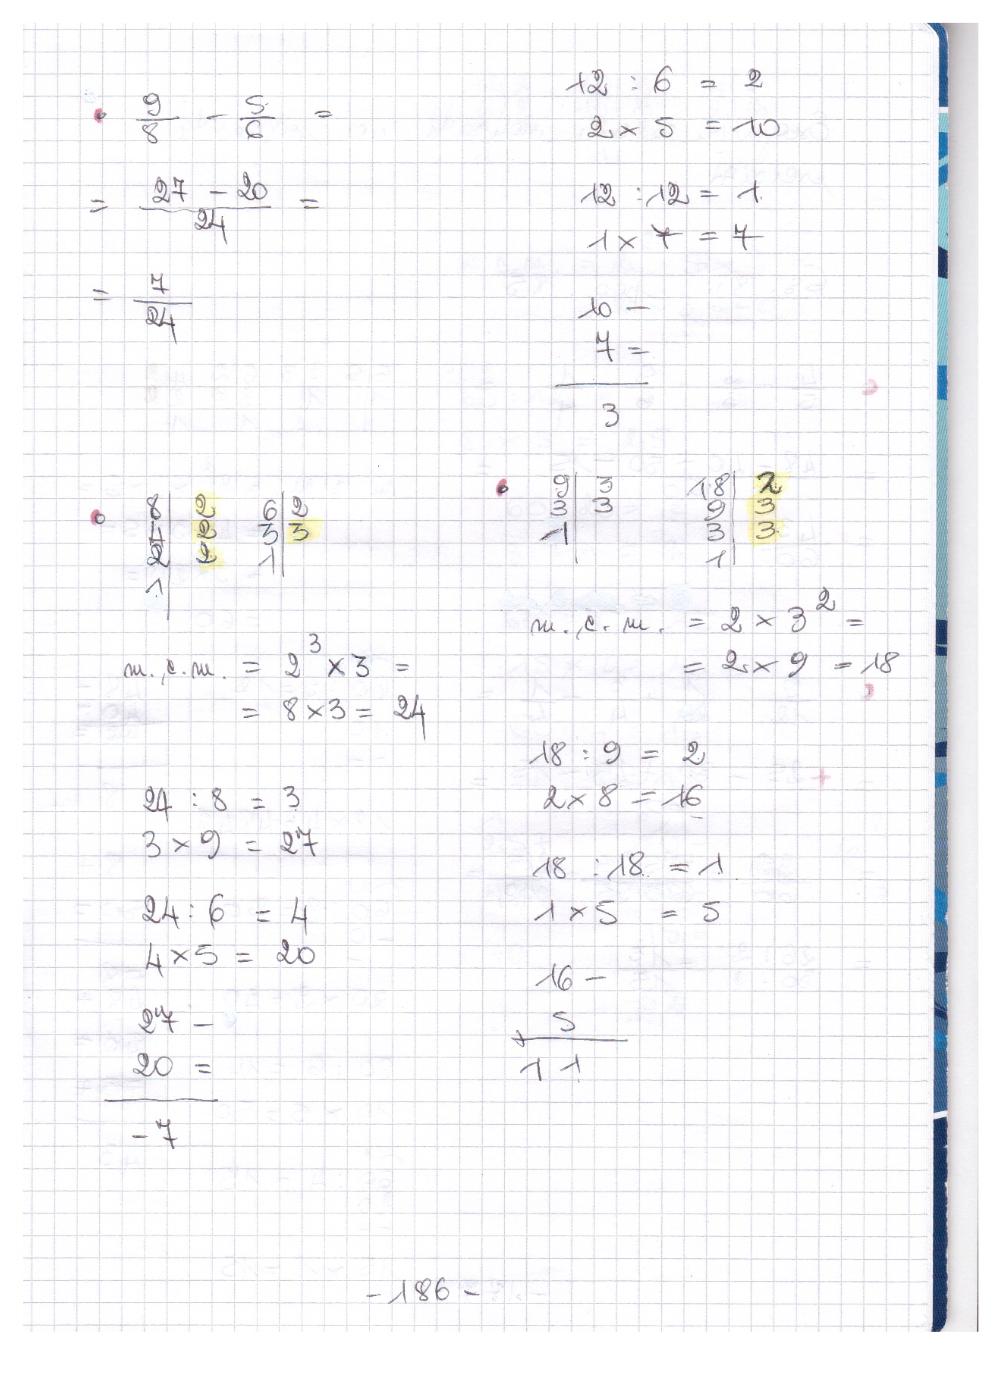 • 9/8 - 5/6 =
= 27 - 20 / 24 =
= 7/24
12 : 6 = 2
2 x 5 = 10
12 : 12 = 1
1 x 7 = 7
10 -
7 =
3
• 8 | 2 6 | 2
4 | 2 3 | 3
2 | 2 1 |
1 |
m.c.m. = 2³ x 3 =
= 8 x 3 = 24
24 : 8 = 3
3 x 9 = 27
24 : 6 = 4
4 x 5 = 20
27 -
20 =
-7
• 9 | 3 18 | 2
3 | 3 9 | 3
1 | 3 | 3
1 |
m.c.m. = 2 x 3² =
= 2 x 9 = 18
18 : 9 = 2
2 x 8 = 16
18 : 18 = 1
1 x 5 = 5
16 -
5
11
- 186 -